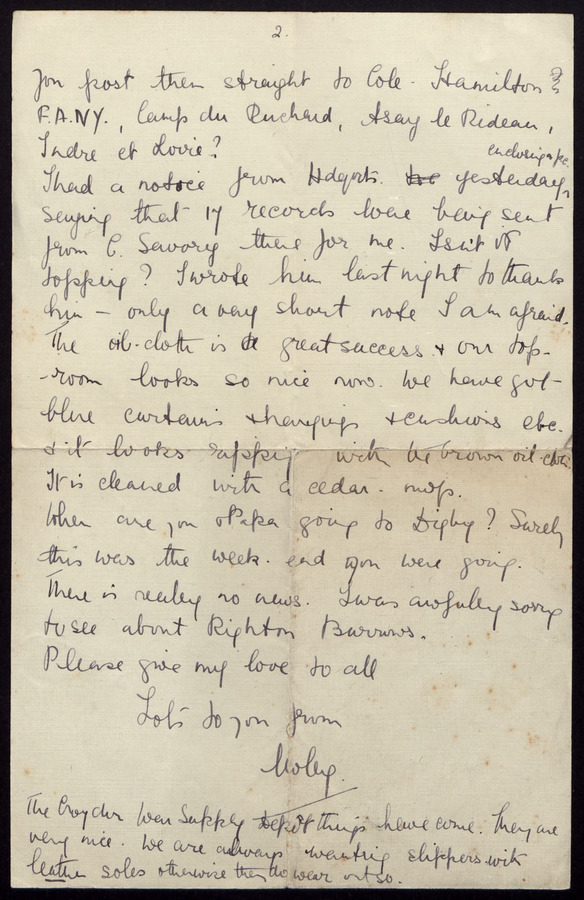 2.
you post them straight to Cole-Hamilton
F.A.N.Y., Camp du Ruchard, Asay le Rideau,
Indre et Loire?
enclosing a pc.
I had a notice from Hdqrts. yesterday,
saying that 17 records were being sent
from C. Savory there for me. Isn't it
topping? I wrote him last night to thank
him – only a very short note I am afraid.
The oil-cloth is a great success & our top-
-room looks so nice now. We have got
blue curtains & hangings & cushions etc.
& it looks ripping with the brown oil-cloth.
It is cleaned with a cedar-mop.
When are you & Papa going to Digby? Surely
this was the week-end you were going.
There is really no news. I was awfully sorry
to see about Righton Burrows.
Please give my love to all
Lots to you from
Moley.
The Croydon War Supply Depôt things have come. They are
very nice. We are always wanting slippers with
leather soles otherwise they do wear out so.